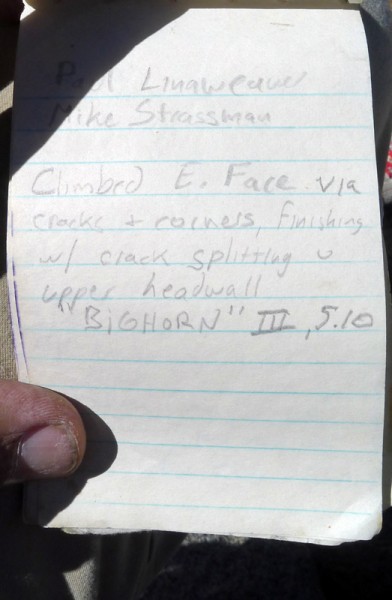 Paul Linaweaver
Mike Strassman
Climbed E. Face via
cracks + corners, finishing
w/ crack splitting
upper headwall
"BIGHORN" III, 5.10